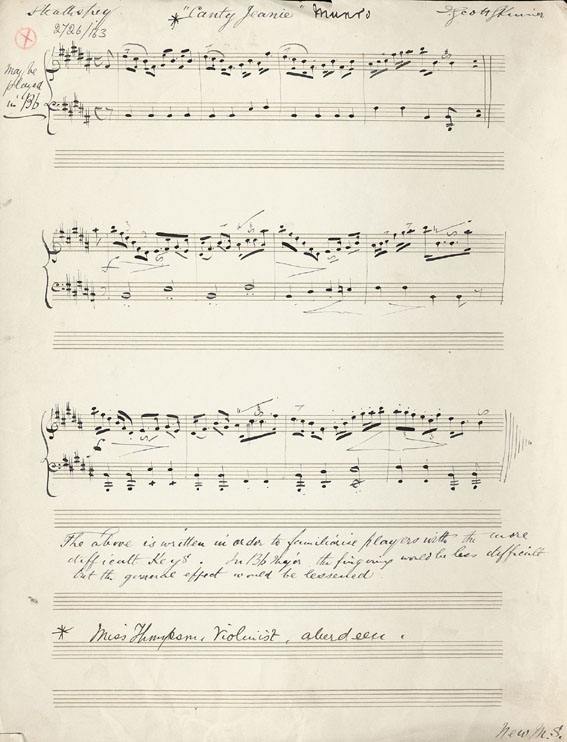 Strathspey
* "Canty Jeanie" Munro
J Scott Skinner
2/26/163
X
May be
played
in Bb
The above is written in order to familiarise players with the more
difficult Keys. In Bb Major the fingering would be less difficult
but the general effect would be lessened
* Miss Thompson, Violinist, Aberdeen.
New M.S.